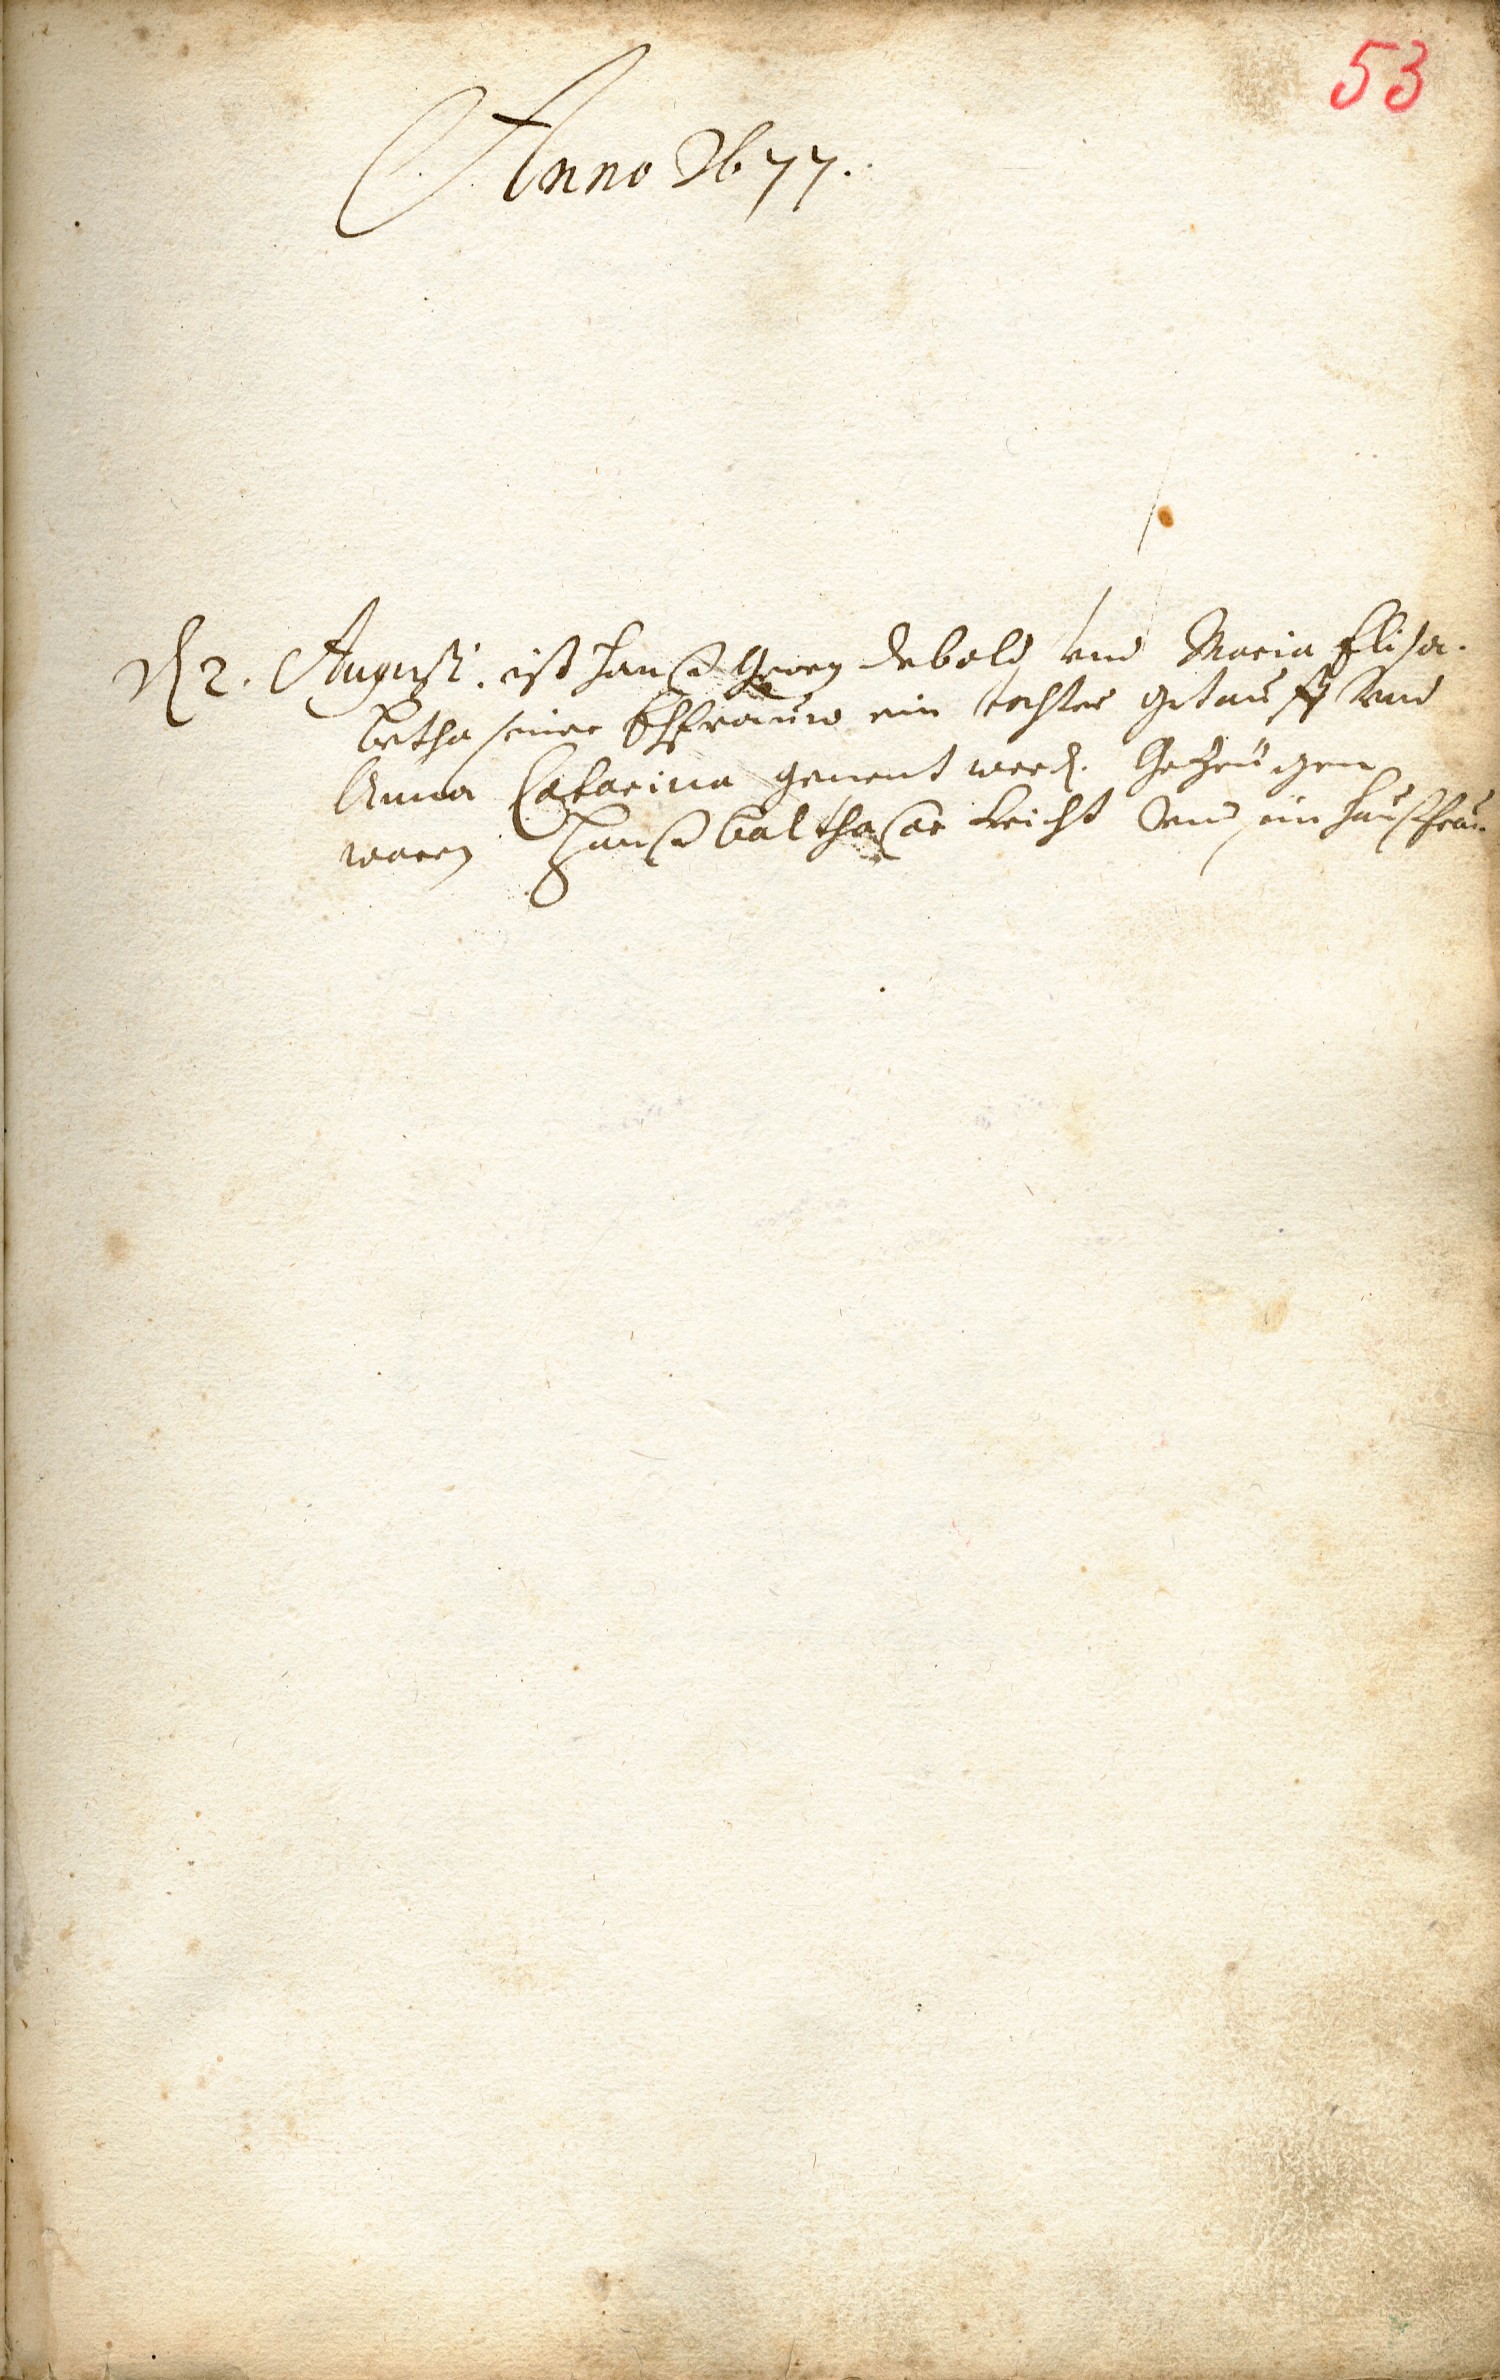 53
Anno 1677.
D 2. Augusti. ist Hanß Georg Debold vnd Maria Elisa-
betha seiner Ehfrauw ein tochter getaufft vnd
Anna Catarina genent word. Gezeugen
waren Hanß Balthasar Leicht vnd sein Haußfrau